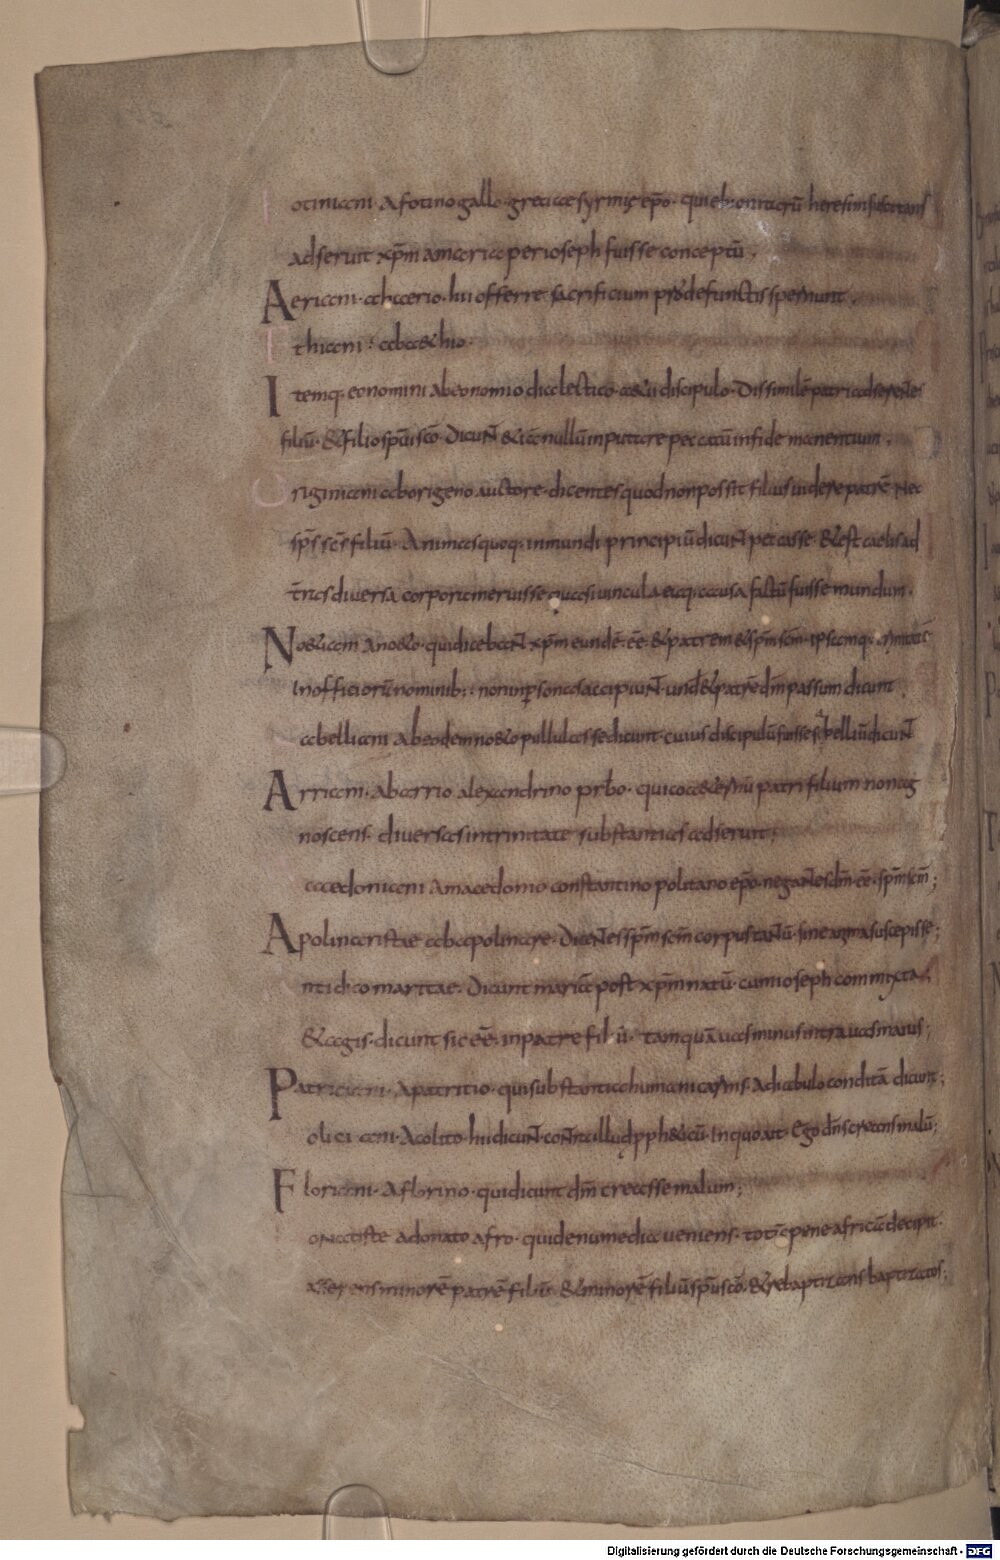 Fotiniani. A fotino gallo greciae syrmię ep̄o. qui ebionitarū heresim sectans
adseruit xp̄m a maria per ioseph fuisse conceptū.
Aeriani. ab aerio. hii offerre sacrificium pro defunctis spernunt.
Ethiani. ab a&hio.
Itemq; eonomini ab eonomio dialectico. a&ii discipulo. Dissimilē patri adserentes
filiū. & filio sp̄m sc̄o. Dicunt & iā nullū inputare peccatū in fide manentium.
Originiani ab origeno auctore. dicentes quod non possit filius uidere patrē Nec
sp̄s sc̄s filiū. Animas quoq; in mundi principiū dicunt peccasse. & est caelis ad
t̄ras diuersa corpora meruisse quasi uincula eaq; causa factū fuisse mundum.
No&iani A no&o. qui dicebant xp̄m eundē. eē. & patrem & sp̄m sc̄m. ipsamq; trinitatē
In officiorū nominib; non in p̱sonas accipiunt. und& patrē dm̄ passum dicunt.
Sabelliani ab eodem no&o pullulasse dicunt. cuius discipulū fuisse sabelliū dicunt
Arriani. Ab arrio alexandrino prb̄o. qui coaeternū patri filium non ag
noscens. diuersas in trinitate substantias adseruit;
Macedoniani A macedonio constantino politano ep̄o. negantes dm̄. eē. sp̄m sc̄m;
Apolinaristae ab apolinare. Dicentes xp̄m sc̄m corpus tantū. sine anima suscepisse;
Antidicomaritae. Dicunt mariā post xp̄m natū. cum ioseph commixta;
&agis. dicunt sic eē. in patre filiū. tamquā uas minus intra uas maius;
Patriciani. A patritio. qui substantia humani carnis. A diabulo conditā dicunt;
Coliciani. A colito. hii dicunt. contra illud p̱ph&icū. In quo ait. Ego dn̄s creans malū;
Floriani. A florino. qui dicunt dm̄ creasse malum;
Donatiste a donato afro. qui de numedia ueniens. totā pene africā decipit.
asserens minorē patrē filiū. & minorē filiū sp̄m sc̄o. & rebaptizans baptizatos;
Digitalisierung gefördert durch die Deutsche Forschungsgemeinschaft - DFG